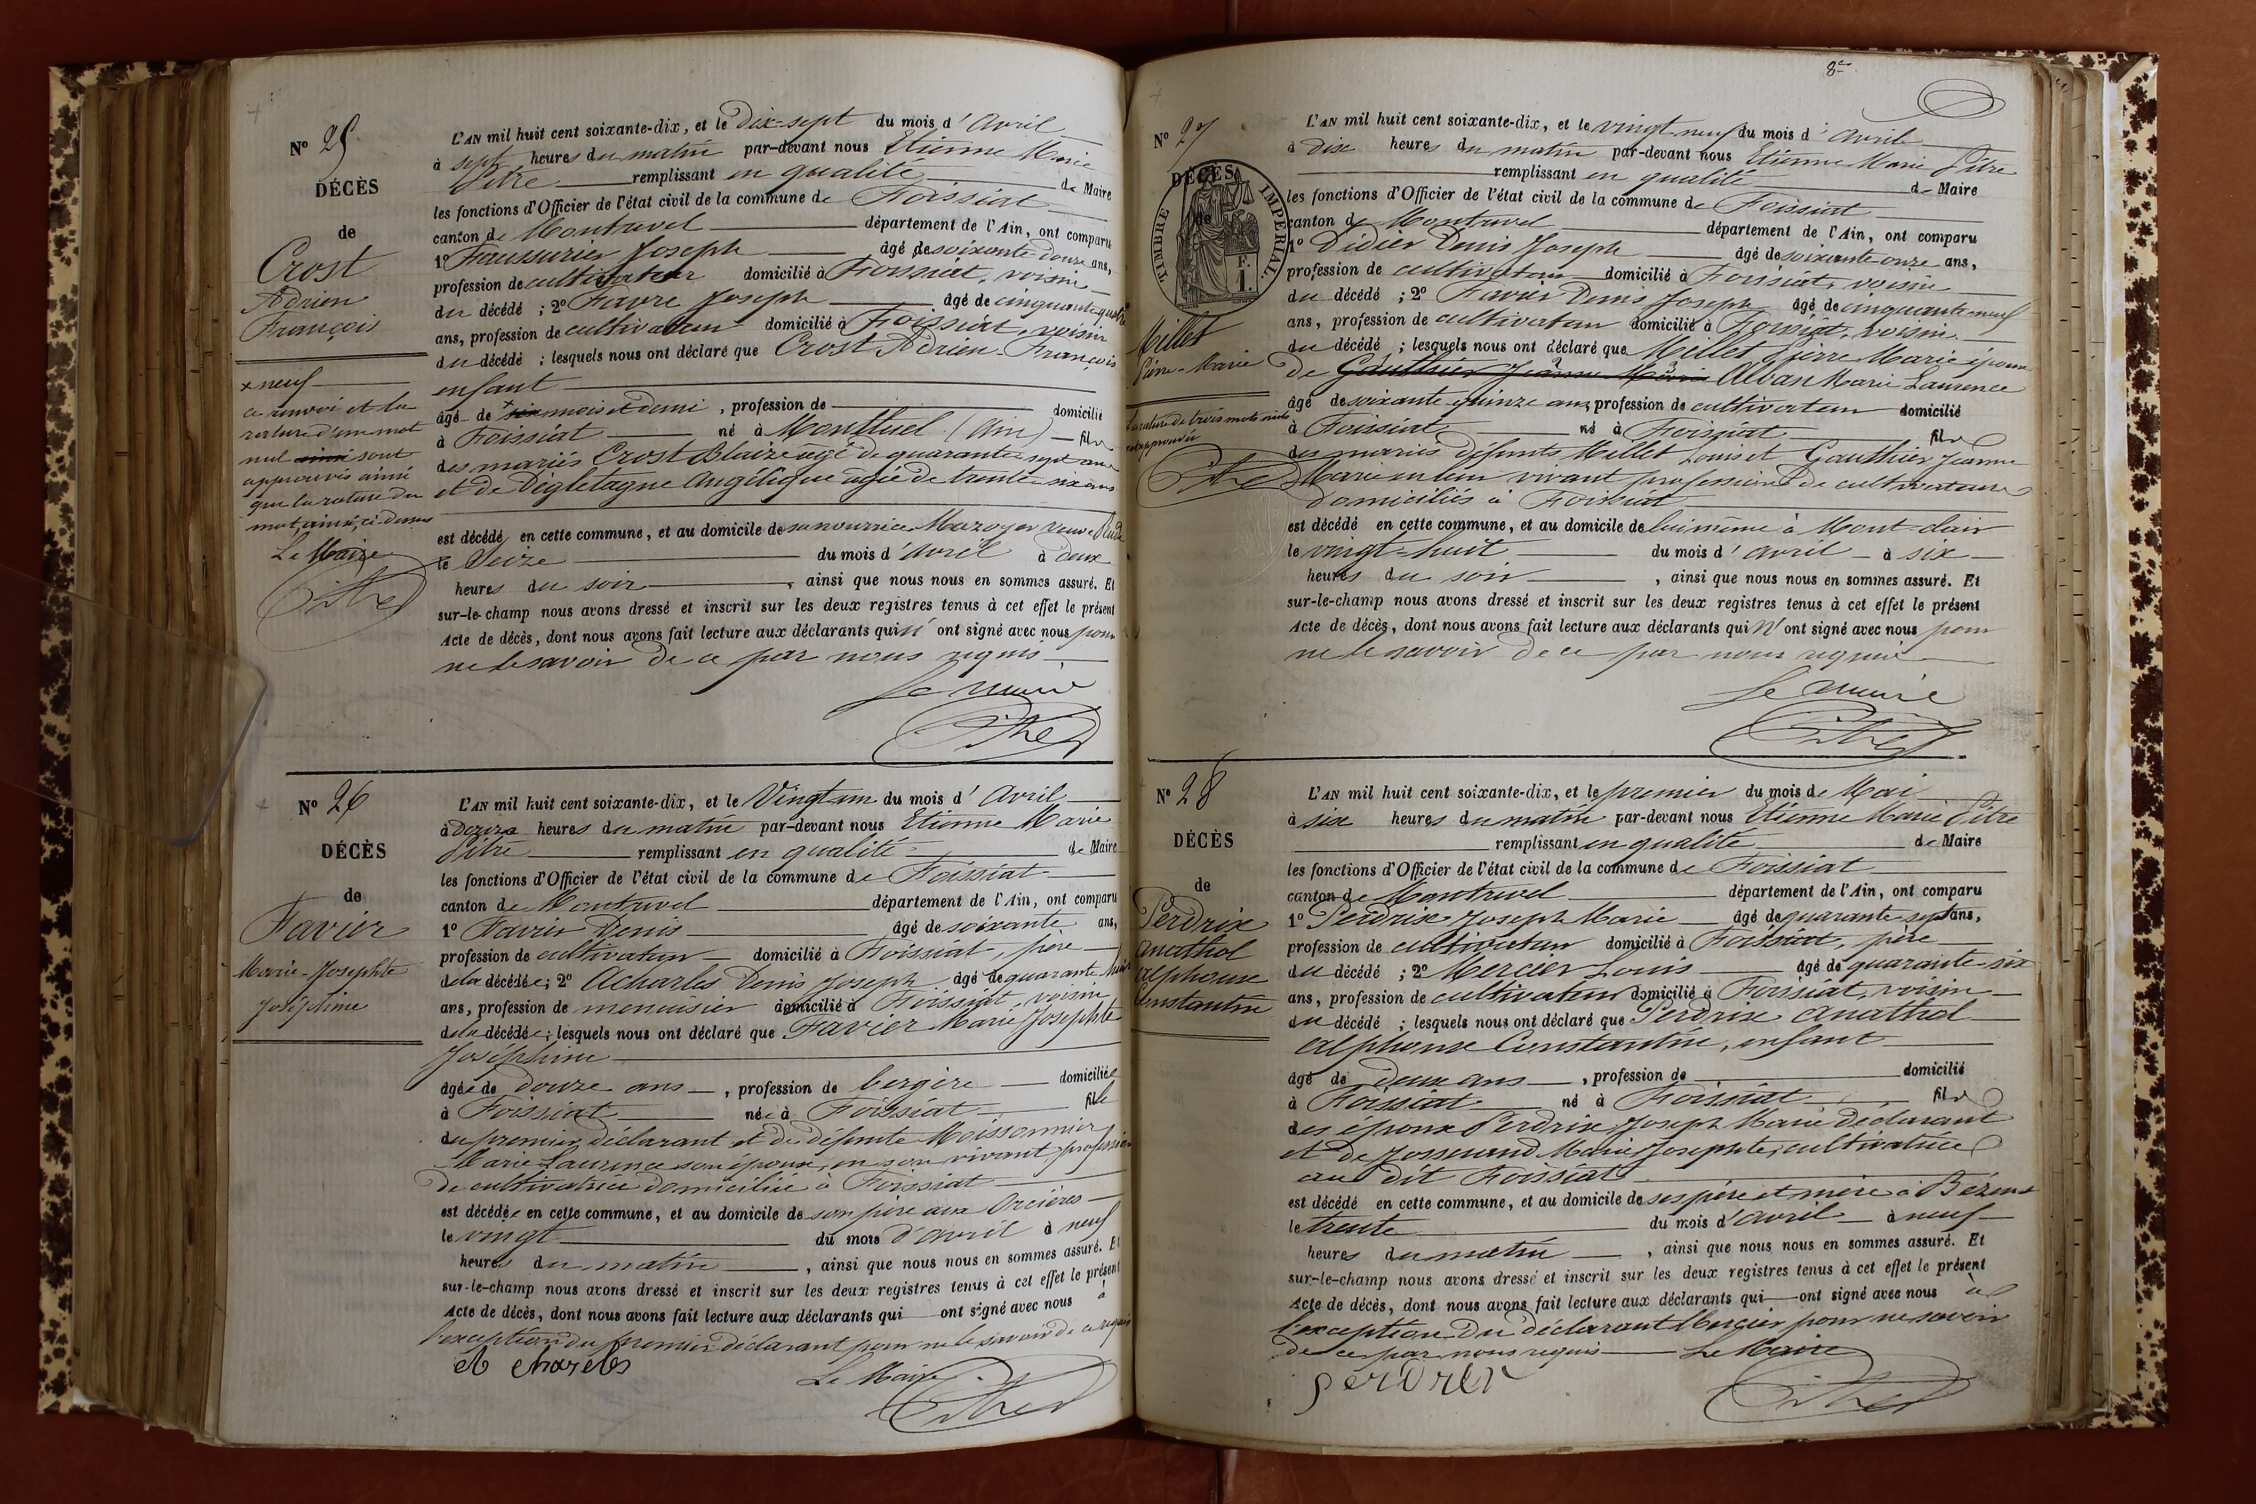 N° 25
DÉCÈS
de
Crost
Adrien
François
x neuf
ce renvoi et la
rature d'un mot
nul ainsi sont
approuvés ainsi
que la rature du
mot ainsi, ci-dessus
Le Maire
Pitre
L'AN mil huit cent soixante-dix, et le Dix-sept du mois d'Avril
à sept heures du matin par-devant nous Etienne Marie
Pitre remplissant en qualité de Maire
les fonctions d'Officier de l'état civil de la commune de Foissiat
canton de Montrevel département de l'Ain, ont comparu
1° Faussurier Joseph âgé de soixante douze ans,
profession de cultivateur domicilié à Foissiat, voisin
du décédé ; 2° Favre Joseph âgé de cinquante quatre
ans, profession de cultivateur domicilié à Foissiat, voisin
du décédé ; lesquels nous ont déclaré que Crost Adrien-François
enfant
âgé de x six mois et demi, profession de domicilié
à Foissiat né à Montluel (Ain) fils
des mariés Crost Blaize âgé de quarante-sept ans
et de Angélique âgée de trente-six ans
est décédé en cette commune, et au domicile de sa nourrice Mazoyer veuve
le Seize du mois d'Avril à deux
heures du soir, ainsi que nous nous en sommes assuré. Et
sur-le-champ nous avons dressé et inscrit sur les deux registres tenus à cet effet le présent
Acte de décès, dont nous avons fait lecture aux déclarants qui n'ont signé avec nous pour
ne le savoir de ce par nous requis
Le Maire
Pitre
N° 26
DÉCÈS
de
Favier
Marie-Josephte
Joséphine
L'AN mil huit cent soixante-dix, et le Vingt un du mois d'Avril
à douze heures du matin par-devant nous Etienne Marie
Pitre remplissant en qualité de Maire
les fonctions d'Officier de l'état civil de la commune de Foissiat
canton de Montrevel département de l'Ain, ont comparu
1° Favier Denis âgé de soixante ans,
profession de cultivateur domicilié à Foissiat, père
de la décédée ; 2° Acharles Denis Joseph âgé de quarante huit
ans, profession de menuisier domicilié à Foissiat, voisin
de la décédée ; lesquels nous ont déclaré que Favier Marie Josephte
Joséphine
âgée de douze ans, profession de bergère domiciliée
à Foissiat née à Foissiat fille
du premier déclarant et de défunte Moissonnier
Marie Laurence son épouse, en son vivant, profession
de cultivatrice domiciliée à Foissiat
est décédée en cette commune, et au domicile de son père aux Orcières
le vingt du mois d'avril à neuf
heures du matin, ainsi que nous nous en sommes assuré. Et
sur-le-champ nous avons dressé et inscrit sur les deux registres tenus à cet effet le présent
Acte de décès, dont nous avons fait lecture aux déclarants qui ont signé avec nous à
l'exception du premier déclarant pour ne le savoir de ce requis
Le Maire
Pitre
8e
N° 27
DÉCÈS
de
TIMBRE IMPÉRIAL
F.
1.
Millet
Pierre-Marie
la rature de trois mots nuls
est approuvée
Pitre
L'AN mil huit cent soixante-dix, et le vingt neuf du mois d'avril
à dix heures du matin par-devant nous Etienne Marie Pitre
remplissant en qualité de Maire
les fonctions d'Officier de l'état civil de la commune de Foissiat
canton de Montrevel département de l'Ain, ont comparu
1° Didier Denis Joseph âgé de soixante onze ans,
profession de cultivateur domicilié à Foissiat, voisin
du décédé ; 2° Favier Denis Joseph âgé de cinquante neuf
ans, profession de cultivateur domicilié à Foissiat, voisin
du décédé ; lesquels nous ont déclaré que Millet Pierre Marie époux
de Gauthier Jeanne Marie Alban Marie Laurence
âgé de soixante quinze ans, profession de cultivateur domicilié
à Foissiat né à Foissiat fils
des mariés défunts Millet Louis et Gauthier Jeanne
Marie en leur vivant profession de cultivateurs
domiciliés à Foissiat
est décédé en cette commune, et au domicile de lui même à Mont-clair
le vingt-huit du mois d'avril à six
heures du soir, ainsi que nous nous en sommes assuré. Et
sur-le-champ nous avons dressé et inscrit sur les deux registres tenus à cet effet le présent
Acte de décès, dont nous avons fait lecture aux déclarants qui n'ont signé avec nous pour
ne le savoir de ce par nous requis
Le Maire
Pitre
N° 28
DÉCÈS
de
Perdrix
Anathol
Alphonse
Constantin
L'AN mil huit cent soixante-dix, et le premier du mois de Mai
à six heures du matin par-devant nous Etienne Marie Pitre
remplissant en qualité de Maire
les fonctions d'Officier de l'état civil de la commune de Foissiat
canton de Montrevel département de l'Ain, ont comparu
1° Perdrix Joseph Marie âgé de quarante sept ans,
profession de cultivateur domicilié à Foissiat, père
du décédé ; 2° Mercier Louis âgé de quarante-six
ans, profession de cultivateur domicilié à Foissiat, voisin
du décédé ; lesquels nous ont déclaré que Perdrix Anathol
Alphonse Constantin, enfant
âgé de deux ans, profession de domicilié
à Foissiat né à Foissiat fils
des époux Perdrix Joseph Marie déclarant
et de Josserand Marie Josephte, cultivatrice
au dit Foissiat
est décédé en cette commune, et au domicile de ses père et mère à Bézens
le trente du mois d'avril à neuf
heures du matin, ainsi que nous nous en sommes assuré. Et
sur-le-champ nous avons dressé et inscrit sur les deux registres tenus à cet effet le présent
Acte de décès, dont nous avons fait lecture aux déclarants qui ont signé avec nous à
l'exception du déclarant Mercier pour ne savoir
de ce par nous requis Le Maire
Perdrix
Pitre